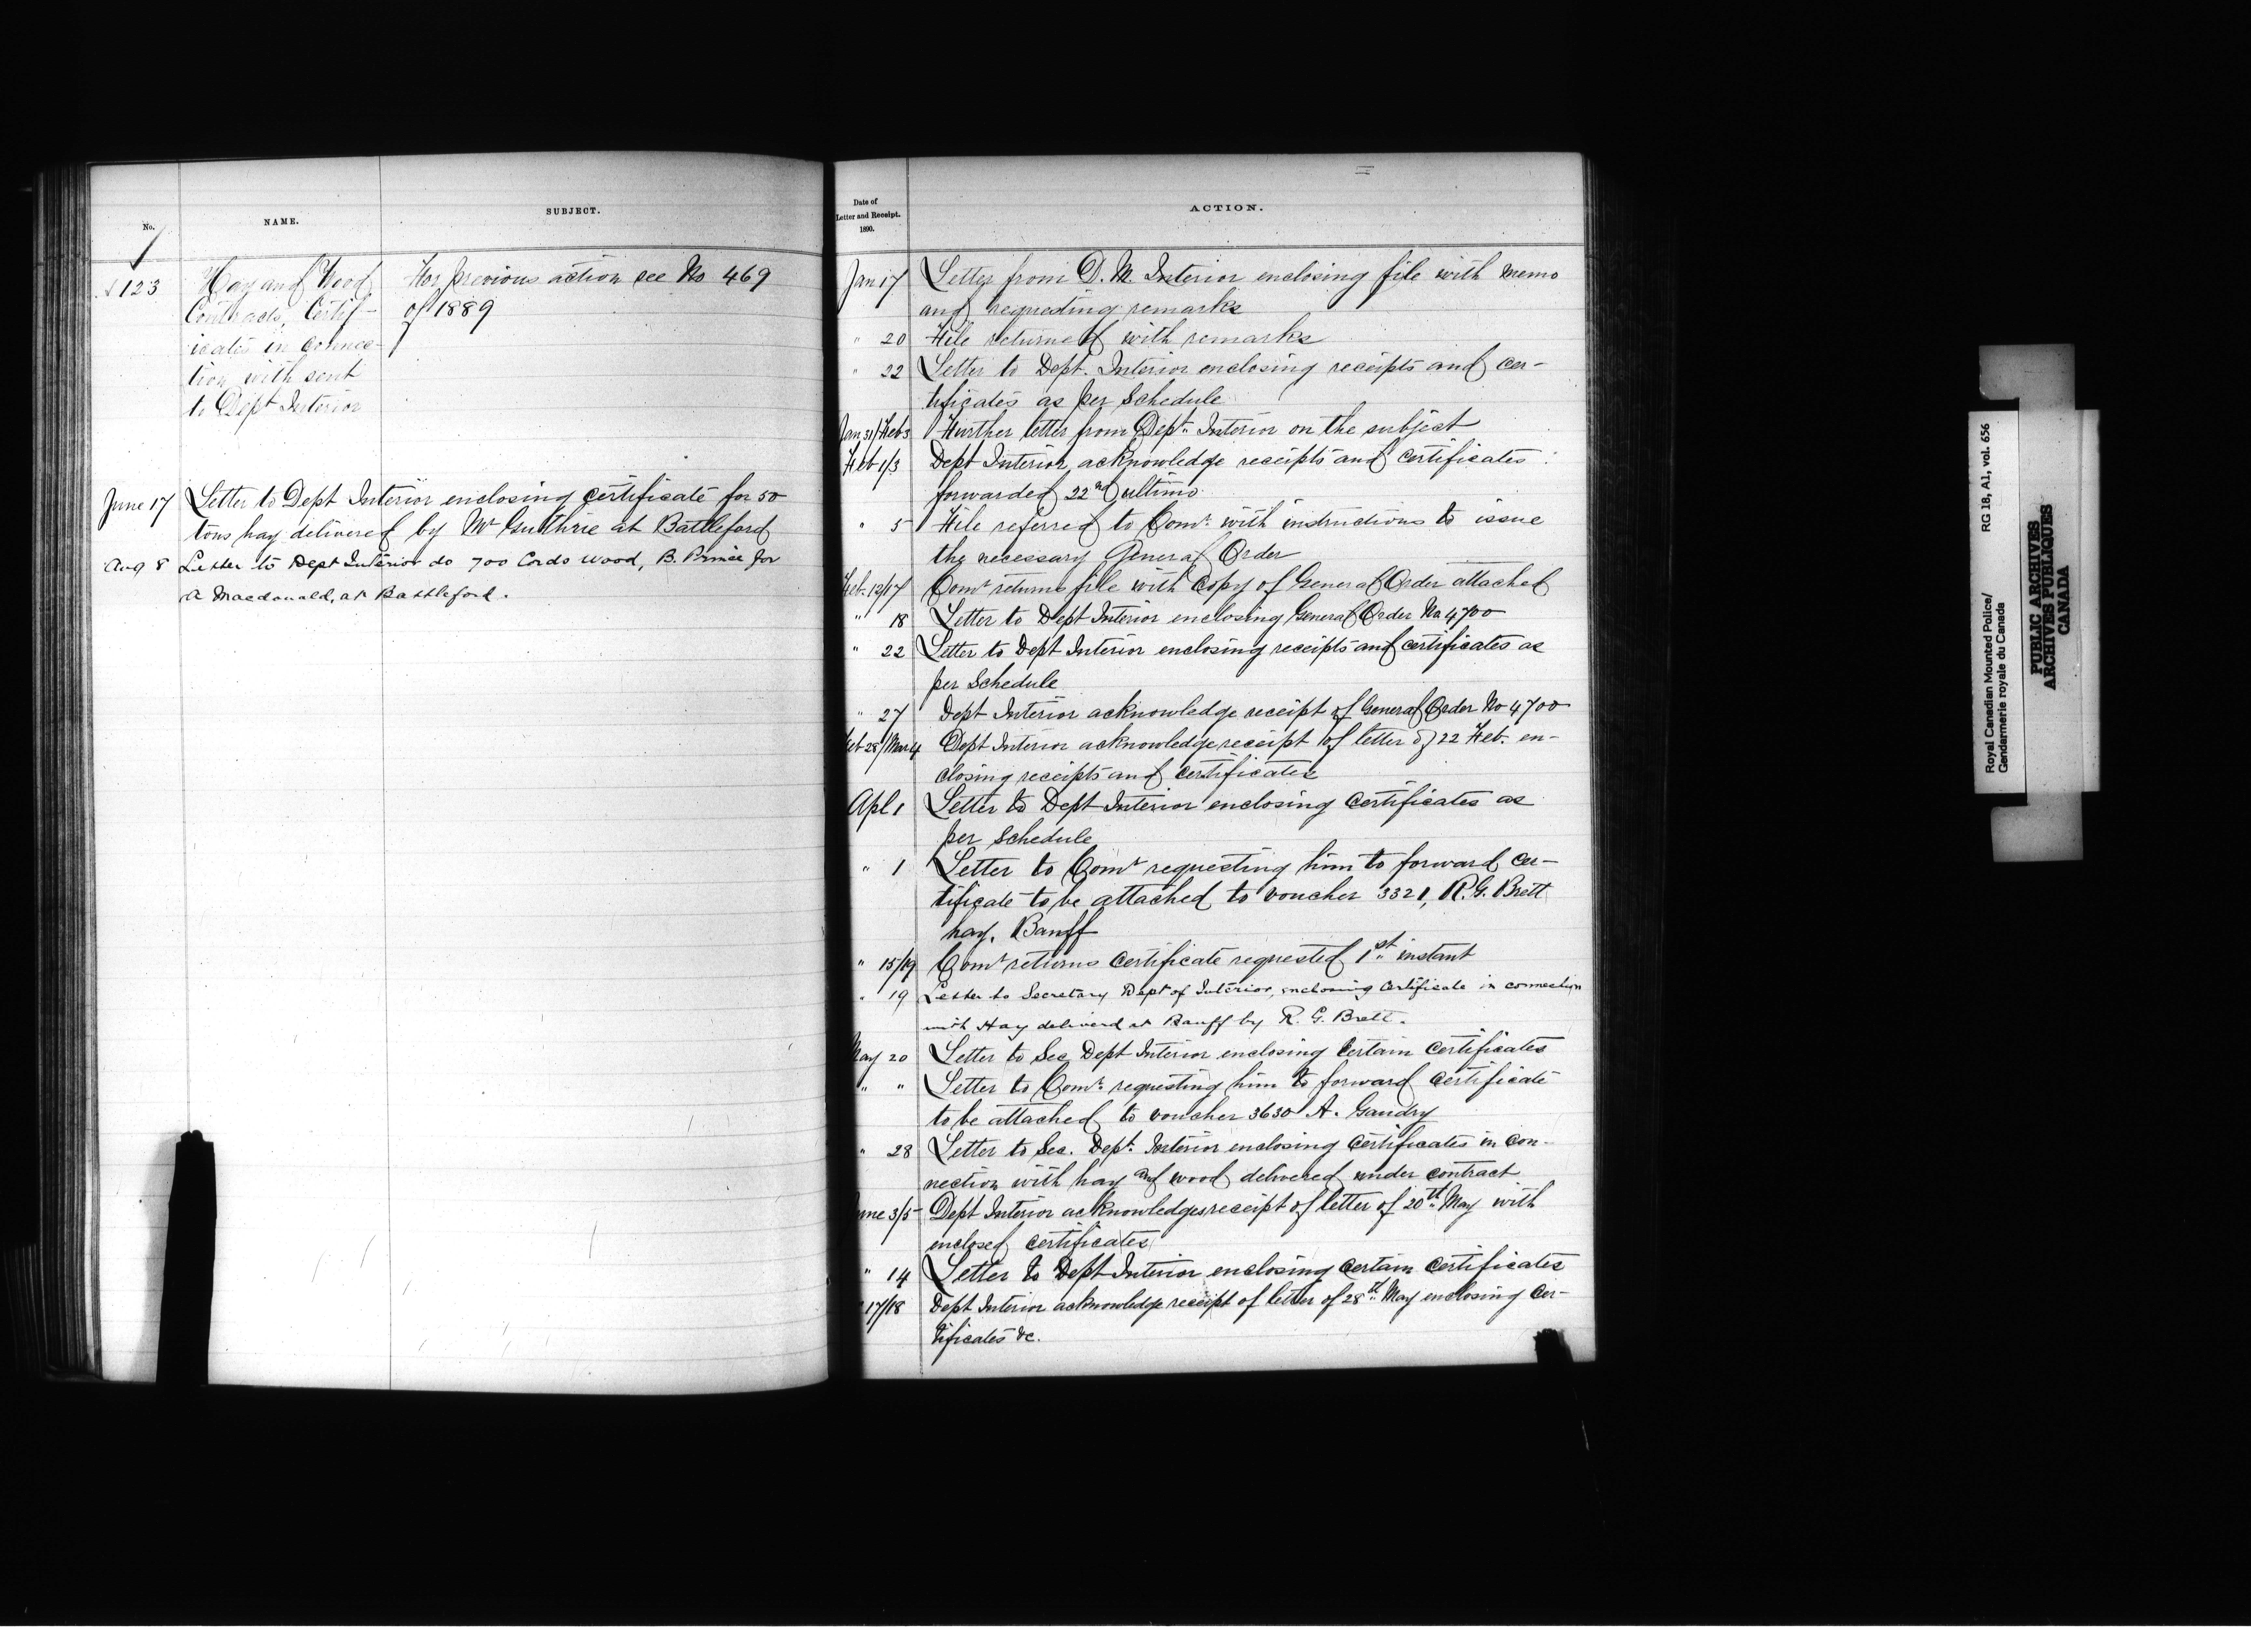 No.
NAME.
SUBJECT.
123
Hay and Wood
Contracts, Certif-
icates in connec-
tion with sent
to Dept Interior
For previous action see No 469
of 1889
June 17 Letter to Dept Interior enclosing certificate for 50
tons hay delivered by Mr Guthrie at Battleford
Aug 8 Letter to Dept Interior do 700 Cords Wood, B. Prince for
A Macdonald, at Battleford.
Date of
Letter and Receipt.
1890.
ACTION.
Jan 17 Letter from D. M. Interior enclosing file with memo
and requesting remarks
" 20 File returned with remarks
" 22 Letter to Dept. Interior enclosing receipts and cer-
tificates as per Schedule
Jan 31/Feb 3 Further letter from Dept. Interior on the subject
Feb 1/3 Dept Interior acknowledge receipts and certificates
forwarded 22nd ultimo
" 5 File referred to Comr. with instructions to issue
the necessary General Order
Feb. 12/17 Comr returns file with copy of General Order attached
" 18 Letter to Dept Interior enclosing General Order No 4700
" 22 Letter to Dept Interior enclosing receipts and certificates as
per Schedule
" 27 Dept Interior acknowledge receipt of General Order No 4700
Feb 28/Mar 4 Dept Interior acknowledge receipt of letter of 22 Feb. en-
closing receipts and certificates
Apl 1 Letter to Dept Interior enclosing certificates as
per Schedule
" 1 Letter to Comr requesting him to forward cer-
tificate to be attached to voucher 3321, R. G. Brett
hay, Banff
" 15/19 Comr returns certificate requested 1st instant
" 19 Letter to Secretary Dept of Interior, enclosing Certificate in connection
with Hay deliverd at Banff by R. G. Brett.
May 20 Letter to Sec Dept Interior enclosing certain certificates
" " Letter to Comr. requesting him to forward certificate
to be attached to voucher 3630 A. Gaudry
" 28 Letter to Sec. Dept. Interior enclosing certificates in con-
nection with hay and wood delivered under contract
June 3/5 Dept Interior acknowledges receipt of letter of 20th May with
enclosed certificates
" 14 Letter to Dept Interior enclosing certain certificates
" 17/18 Dept Interior acknowledge receipt of letter of 28th May enclosing cer-
tificates &c.
Royal Canadian Mounted Police/ RG 18, A1, vol. 656
Gendarmerie royale du Canada
PUBLIC ARCHIVES
ARCHIVES PUBLIQUES
CANADA